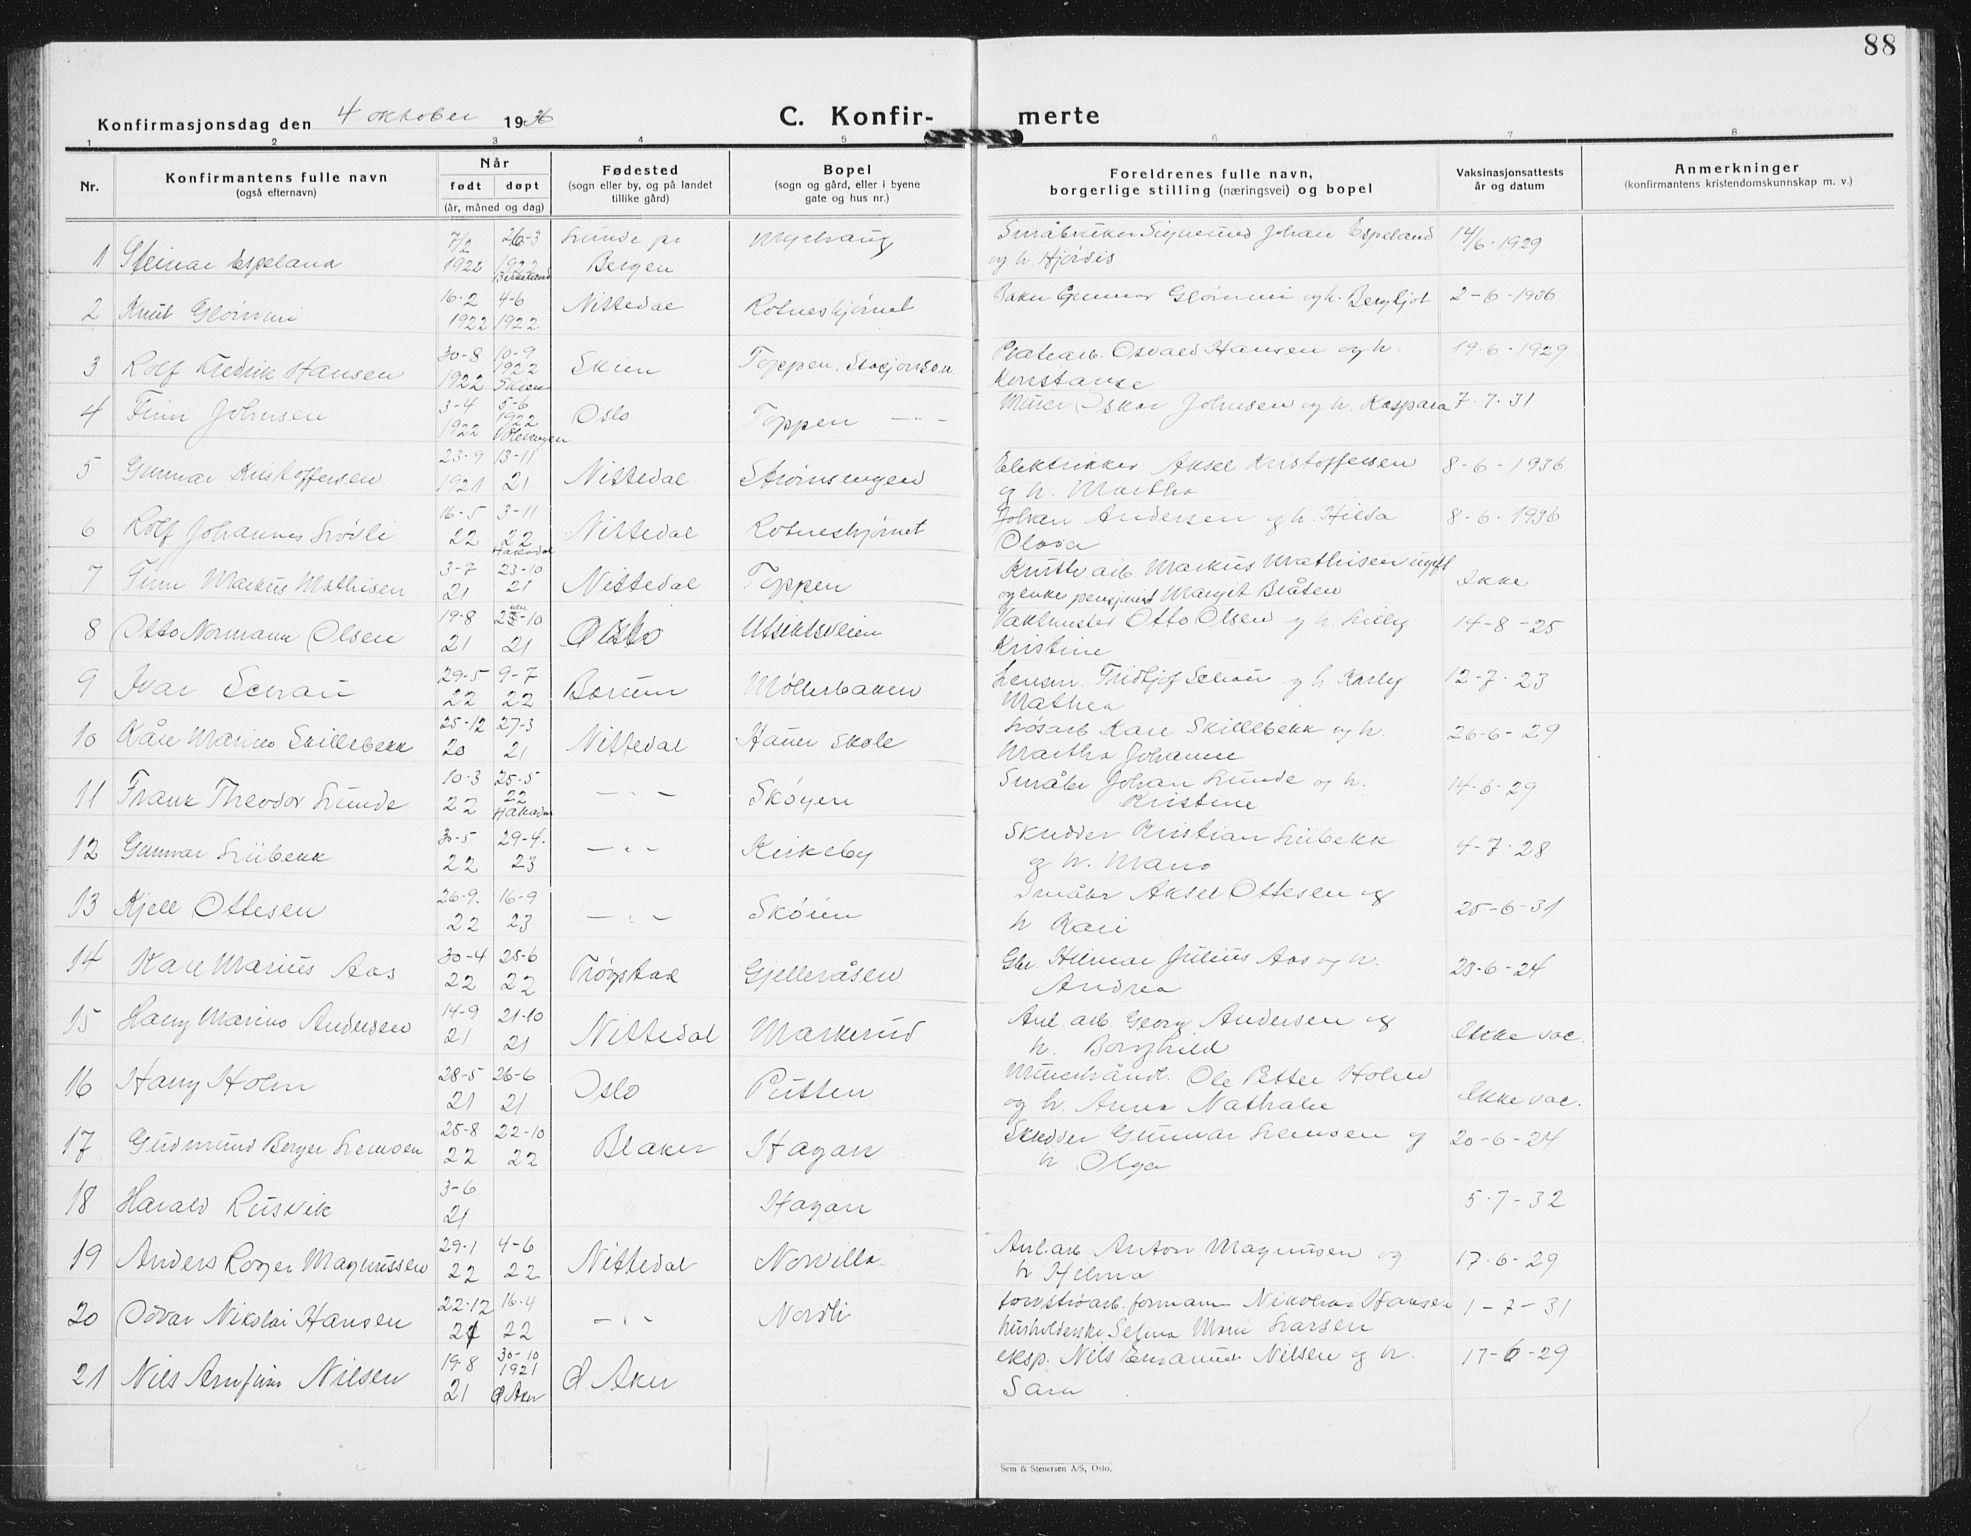 88
Konfirmasjonsdag den 4 oktober 1936
C. Konfir- merte
1 2 3 4 5 6 7 8
Nr.
Konfirmantens fulle navn
(også efternavn)
Når
født døpt
(år, måned og dag)
Fødested
(sogn eller by, og på landet
tillike gård)
Bopel
(sogn og gård, eller i byene
gate og hus nr.)
Foreldrenes fulle navn,
borgerlige stilling (næringsvei) og bopel
Vaksinasjonsattests
år og datum
Anmerkninger
(konfirmantens kristendomskunnskap m. v.)
1 Steinar Espeland 7/2 1922 26-3 1922 Bergen Johan Espeland 14/6-1929
og h. Hjørdis
2 Knut Glømmi 16-2 1922 4-6 1922 Nittedal Rotneshjørnet Baker Gunnar Glømmi og h. Bergljot 2-6-1936
3 Rolf Fredrik Hansen 30-8 1922 10-9 1922 Skien Skien Toppen, Osvald Hansen og h. 19-6-1929
Konstanse
4 Finn Johnsen 3-4 1922 5-6 1922 Oslo Toppen -"- Murer Oskar Johnsen og h. Kaspara 7-7-31
5 Gunnar Kristoffersen 23-9 1921 13-11 21 Nittedal Strømsengen Elektrikker Aksel Kristoffersen 8-6-1936
og h. Martha
6 Rolf Johannes 16-5 22 3-11 22 Hakadal Nittedal Rotneshjørnet Johan Andersen og h. Hilda 8-6-1936
Olava
7 Finn Markus Mathisen 3-7 21 23-10 21 Nittedal Toppen arb. Markus Mathisen ugift Ikke
og enke pensjonist Margit Bråten
8 Otto Normann Olsen 19-8 21 21 Oslo Utsiktsveien Vaktmester Otto Olsen og h. Lilly 14-8-25
Kristine
9 Ivar Schau 29-5 22 9-7 22 Bærum Møllerbakken Lensm. Fridtjof Schau og h. Karly 12-7-23
Mathea
10 Kåre Marino Skillebekk 25-12 20 27-3 21 Nittedal Hauer skole Løsarb Kare Skillebekk og h. 26-6-29
Martha Johanne
11 Franz Theodor Lunde 10-3 22 25-5 22 Hakadal -"- Skøyen Småbr Johan Lunde og h. 14-6-29
Kristine
12 Gunnar Liibekk 30-5 22 29-4 23 -"- Kirkeby Skredder Kristian Liibekk 4-7-28
og h. Maria
13 Kjell Ottesen 26-9 22 16-9 23 -"- Skøien Småbr Aksel Ottesen og 25-6-31
h Kari
14 Kåre Marius Aas 30-4 22 25-6 22 Trøgstad Gjelleråsen Gbr. Hilmar Julius Aas og h. 23-6-24
Andrea
15 Harry Marino Andersen 14-9 21 21-10 21 Nittedal Markerud Anl. arb. Georg Andersen og Ikke vac.
h. Borghild
16 Harry Holm 28-5 21 26-6 21 Oslo Putten Ole Petter Holm Ikke vac.
og h. Anna Nathalie
17 Gudmund Berger Lemsen 25-8 22 22-10 22 Blaker Hagan Skredder Gunnar Lemsen og 20-6-24
h Olga
18 Harald Rusvik 3-6 21 Hagan 5-7-32
19 Anders Roger Magnussen 29-1 22 4-6 22 Nittedal Norvilla Anl. arb. Anton Magnusen og 17-6-29
h Helma
20 Oddvar Nikolai Hansen 22-12 21 16-4 22 -"- Nordli formann Nikolai Hansen 1-7-31
husholderske Selma Marie Larsen
21 Nils Arnfinn Nilsen 19-8 21 30-10 1921 Ø Aker Ø Aker eksp. Nils Emanuel Nilsen og h. 17-6-29
Sara
Sem & Stenersen A/S, Oslo.